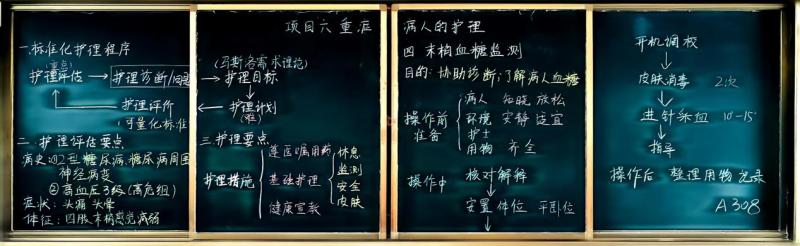 项目六 重症病人的护理
一.标准化护理程序
(重点)
护理评估 → 护理诊断/问题
(马斯洛需求理论)
→ 护理目标
↓
护理计划
(难)
← 护理评价
(可量化标准)
二.护理评估要点
病史:①2型糖尿病.糖尿病周围
神经病变
②高血压3级(高危组)
症状:头痛 头晕
体征:四肢末梢感觉减弱
三.护理要点
护理措施
遵医嘱用药
基础护理
健康宣教
休息
监测
安全
皮肤
四 末梢血糖监测
目的:协助诊断;了解病人血糖
操作前
准备
病人 知晓 放松
环境 安静 适宜
护士
用物 齐全
操作中 核对解释
↓
安置体位 平卧位
↓
开机调校
↓
皮肤消毒 2次
↓
进针采血 10-15
↓
指导
操作后 整理用物 记录
A308